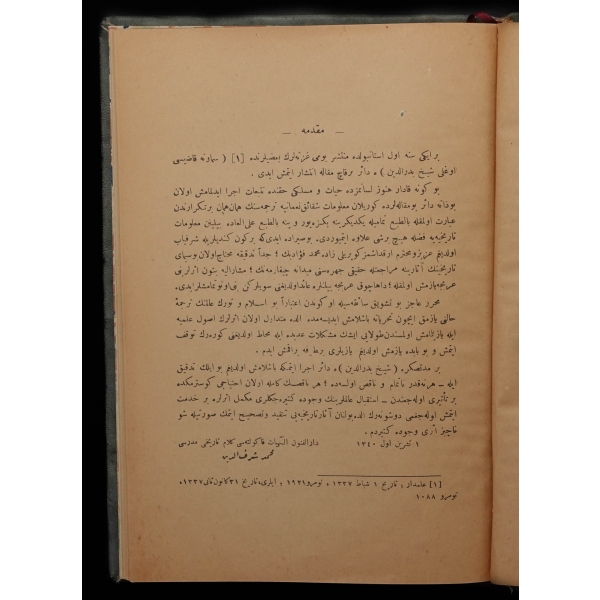 — مقدمه —
بر ایكی سنه اول استانبولده منتشر یومی غزته‌لرك بعضیلرنده [١] ( سماونه قاضیسی
اوغلی شیخ بدرالدین ) ه دائر برقاچ مقاله انتشار ایتمش ایدی .
بو كونه قادار هنوز لسانمزده حیات و مسلكی حقنده تتبعات اجرا ایدلمامش اولان
بوذاته دائر بومقاله‌لرده كوریلان معلومات شقائق نعمانیه ترجمه‌سنك همان همان برتكرارندن
عبارت اولمقله بالطبع تمامیله یكدیكرینه بكزه‌یور و ینه بالطبع علی‌العاده بیلینن معلومات
تاریخیه‌یه فضله هیچ برشی علاوه ایتمیوردی. بوصیراده ایدی‌كه بركون كندیلریله شرفیاب
اولدیغم عزیز و محترم آرقداشمز كوپریلی زاده محمد فؤاد بك ؛ جداً تدقیقه محتاج اولان بوسیمای
تاریخینك آثارینه مراجعتله حقیقی چهره‌سنی میدانه چیقارمه‌نك ؛ مشارالیه بتون اثرلرنی
عربجه یازمش اولمقله ؛ داها چوق عربجه بیلنلره عائد اولدیغنی سویلركن
محرر عاجز بو تشویق سائقه‌سیله او كوندن اعتباراً بو اسلام و تورك عالمنك ترجمهٔ
حالنی یازمق ایچون تحریاته باشلامش ایدیسه‌مده الده متداول اولان اثرلرك اصول علمیه
ایله یازلمامش اولمسندن طولایی ایشك مشكلات عدیده ایله محاط اولدیغنی كوره‌رك توقف
ایتمش و بو بابده یازمش اولدیغم یازیلری برطرفه براقمش ایدم .
بر مدتصكره ( شیخ بدرالدین ) ه دائر اجرا ایتمكه باشلامش اولدیغم بو ایلك تدقیق
ایله ـ هرنه‌قدر ناتمام و ناقص اولسه‌ده ؛ هر ناقصك كامله اولان احتیاجنی كوسترمكده
بر تأثیری اوله‌جغندن ـ استقبال عالملرینك وجوده كتیره‌جكلری مكمل اثرلره بر خدمت
ایتمش اوله‌جغمی دوشونه‌رك الده بولنان آثار تاریخیه‌یی تنقید و تصحیح ایتمك صورتیله شو
ناچیز اثری وجوده كتیردم .
١ تشرین اول ١٣٤٠ دارالفنون الٰهیات فاكولته‌سی كلام تاریخی مدرسی
محمد شرف‌الدین
[١] علمدار ؛ تاریخ ١ شباط ١٣٣٧ ، نومرو ١٩٣١ ؛ ایلری، تاریخ ٣١ كانون ثانی ١٣٣٧،
نومرو ١٠٨٨